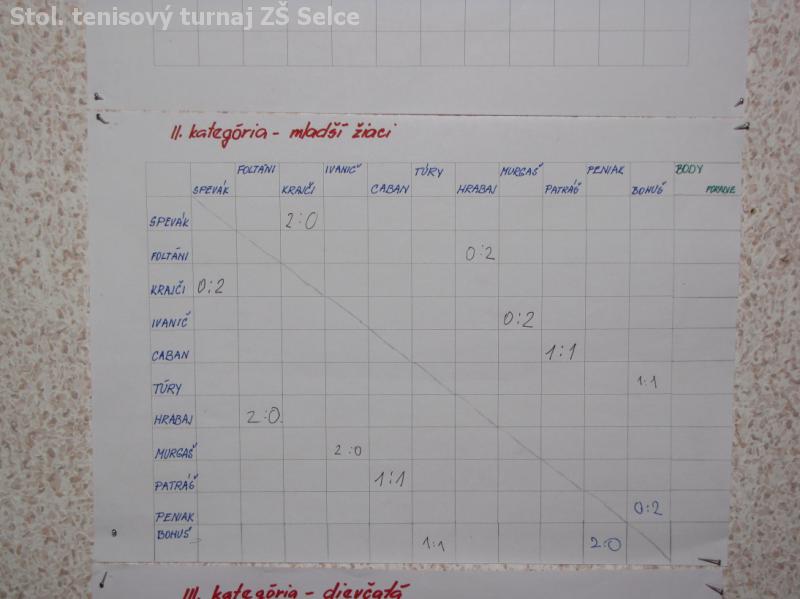 Stol. tenisový turnaj ZŠ Selce
II. kategória - mladší žiaci
FOLTÁNI IVANIČ TÚRY MURGAŠ PENIAK BODY
SPEVÁK KRAJČI CABAN HRABAJ PATRÁŠ BOHUŠ
SPEVÁK 2:0
FOLTÁNI 0:2
KRAJČI 0:2
IVANIČ 0:2
CABAN 1:1
TÚRY 1:1
HRABAJ 2:0
MURGAŠ 2:0
PATRÁŠ 1:1
PENIAK 0:2
BOHUŠ 1:1 2:0
III. kategória - dievčatá